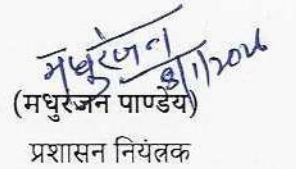 मधुरंजन
8/1/2026
(मधुरंजन पाण्डेय)
प्रशासन नियंत्रक